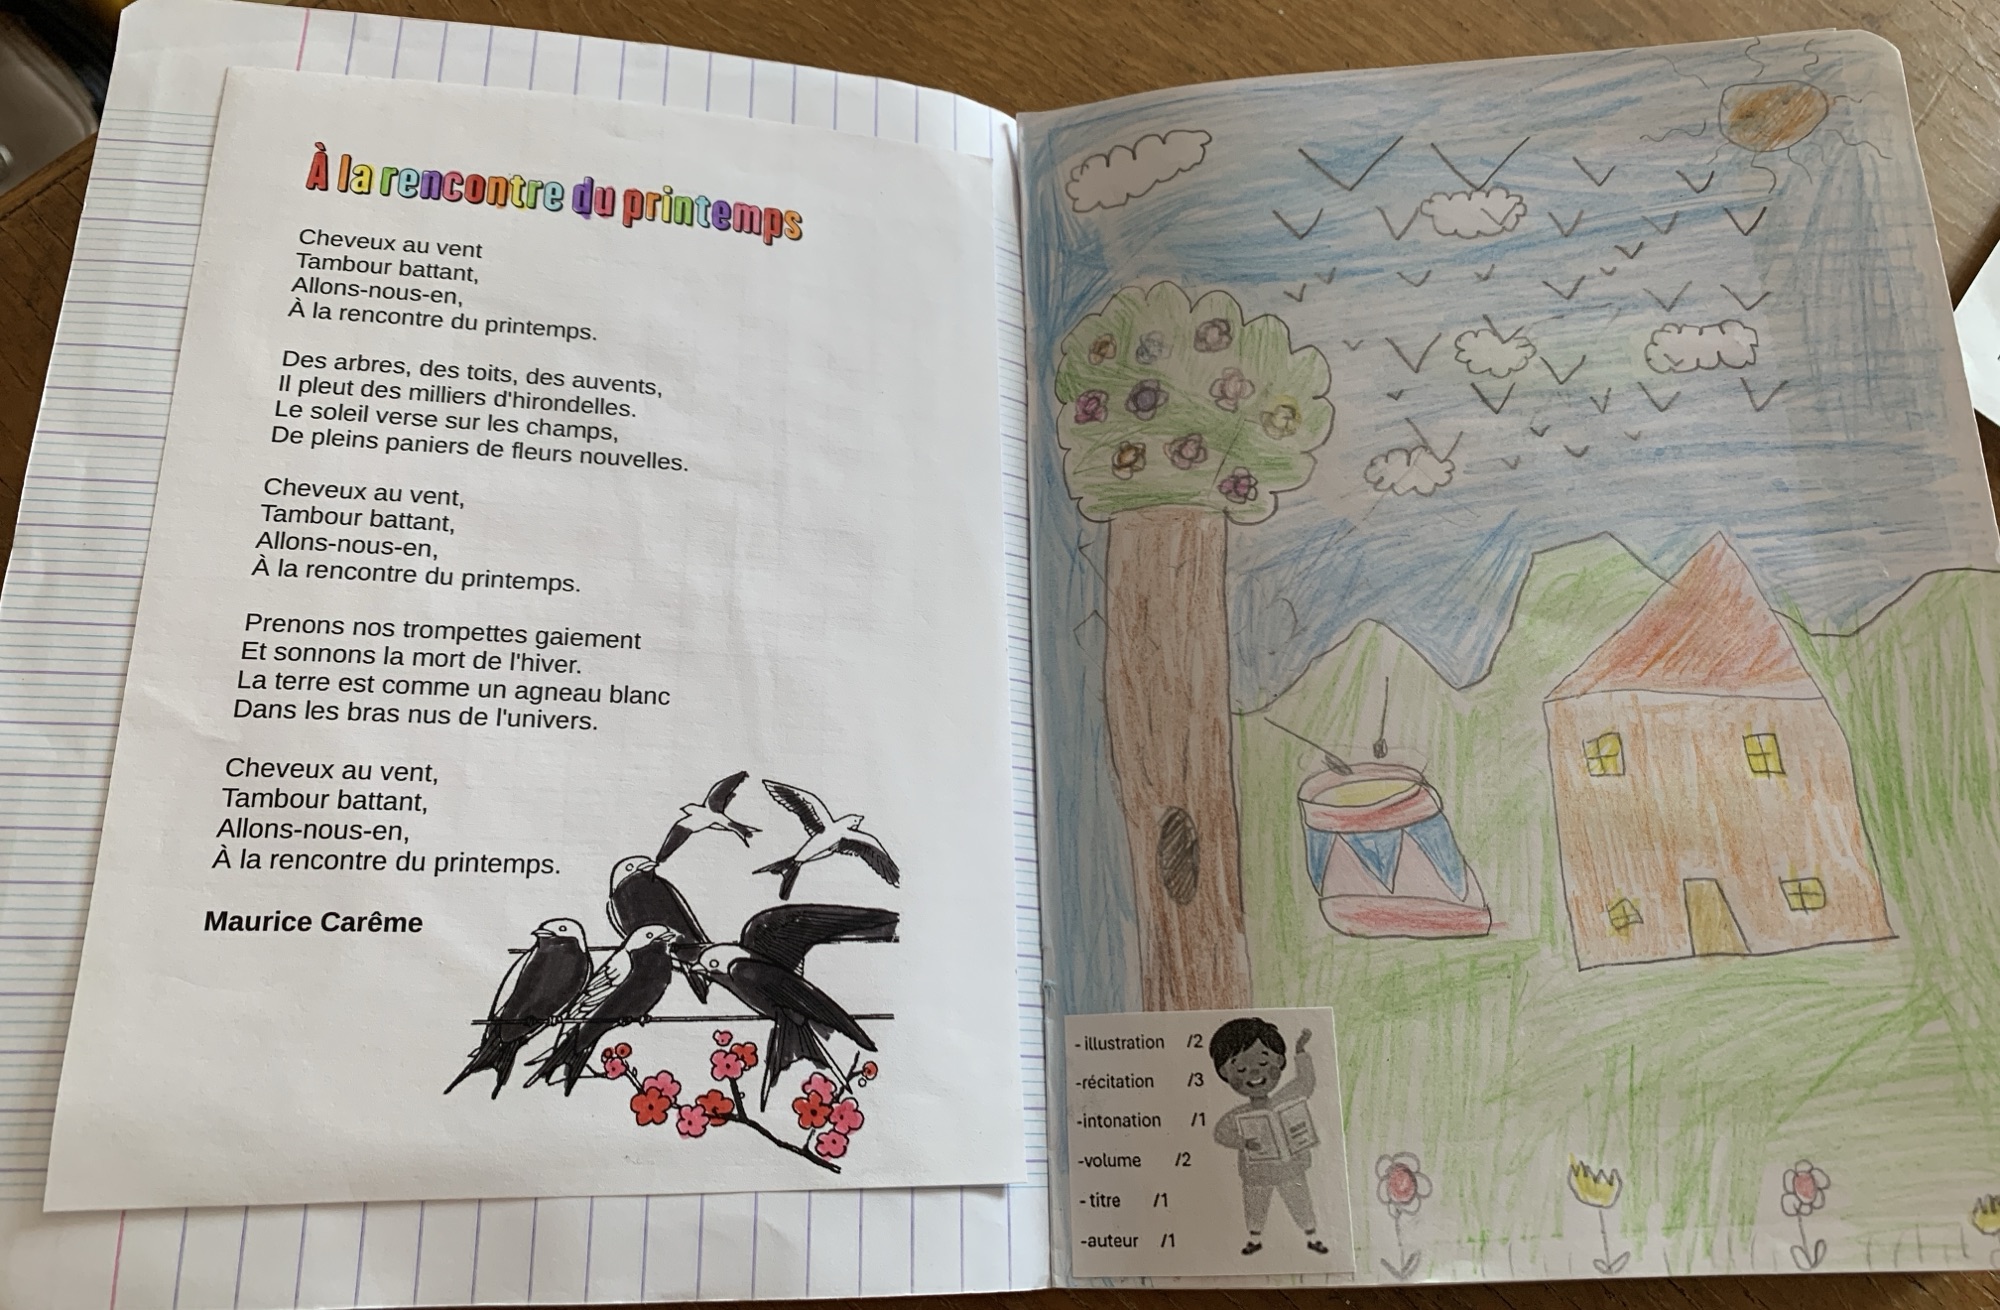 À la rencontre du printemps
Cheveux au vent
Tambour battant,
Allons-nous-en,
À la rencontre du printemps.
Des arbres, des toits, des auvents,
Il pleut des milliers d'hirondelles.
Le soleil verse sur les champs,
De pleins paniers de fleurs nouvelles.
Cheveux au vent,
Tambour battant,
Allons-nous-en,
À la rencontre du printemps.
Prenons nos trompettes gaiement
Et sonnons la mort de l'hiver.
La terre est comme un agneau blanc
Dans les bras nus de l'univers.
Cheveux au vent,
Tambour battant,
Allons-nous-en,
À la rencontre du printemps.
Maurice Carême
- illustration /2
-récitation /3
-intonation /1
-volume /2
- titre /1
-auteur /1